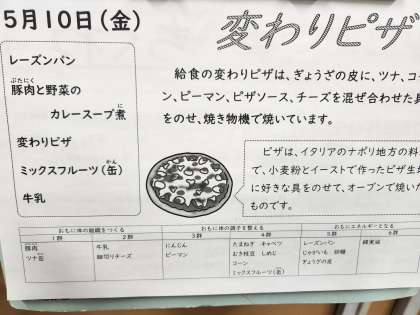 5月10日（金）
変わりピザ
レーズンパン
豚肉と野菜の
カレースープ煮
変わりピザ
ミックスフルーツ（缶）
牛乳
給食の変わりピザは、ぎょうざの皮に、ツナ、コー
ン、ピーマン、ピザソース、チーズを混ぜ合わせた具
をのせ、焼き物機で焼いています。
ピザは、イタリアのナポリ地方の料
で、小麦粉とイーストで作ったピザ生
に好きな具をのせて、オーブンで焼いた
ものです。
おもに体の組織をつくる おもに体の調子を整える おもにエネルギーとなる
1群 2群 3群 4群 5群 6群
豚肉 牛乳 にんじん たまねぎ キャベツ レーズンパン 綿実油
ツナ缶 細切りチーズ ピーマン むき枝豆 しめじ じゃがいも 砂糖
コーン ぎょうざの皮
ミックスフルーツ（缶）